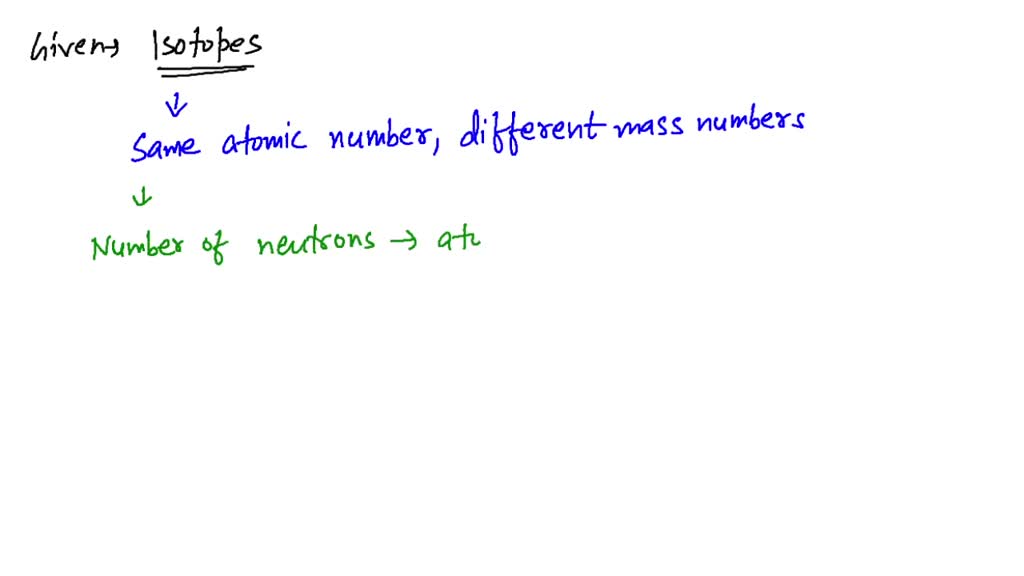 Given→ Isotopes
↓
Same atomic number, different mass numbers
↓
Number of neutrons → ato